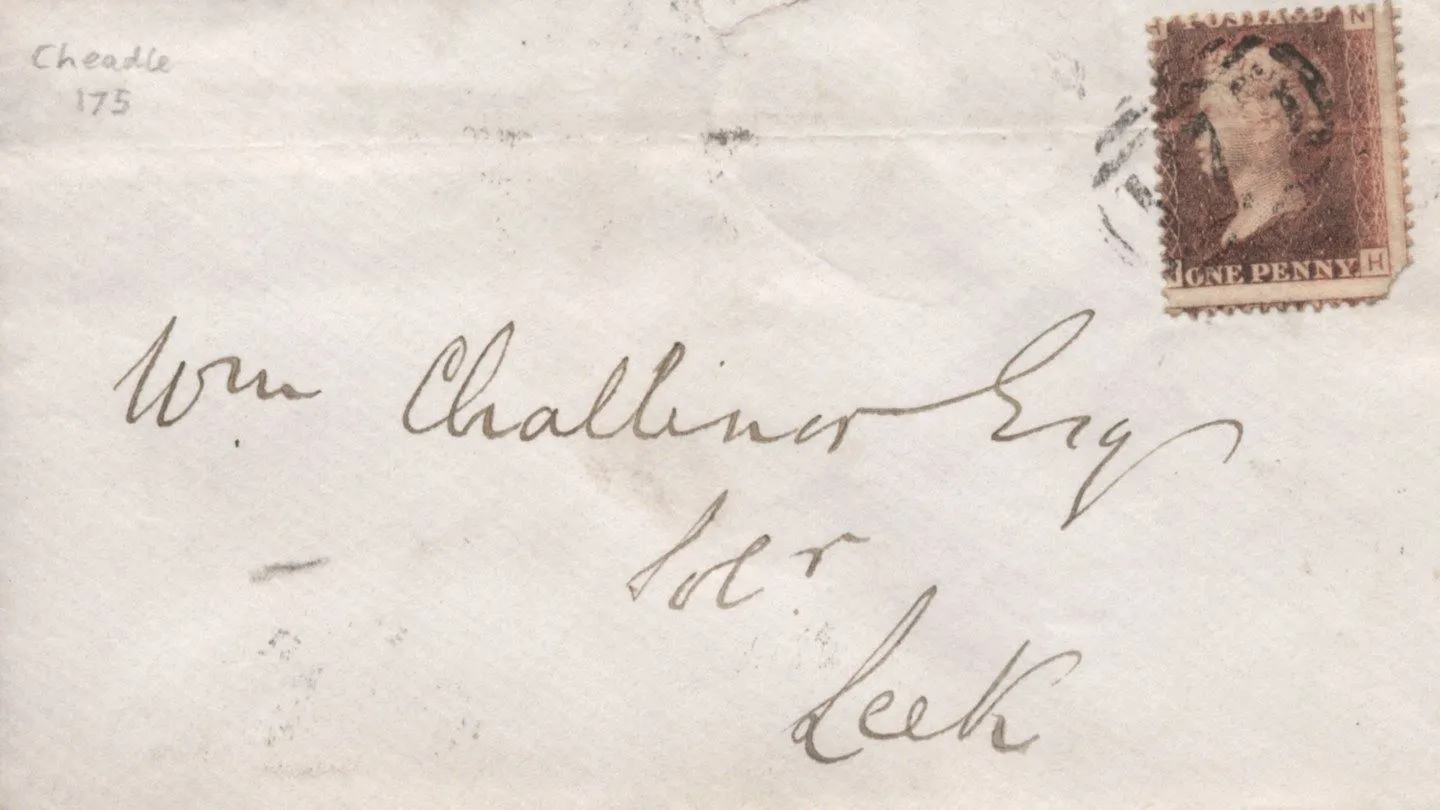 Cheadle
175
POSTAGE N
ONE PENNY H
Wm Challinor Esq
Solr
Leek